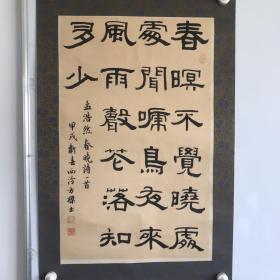 春暝不覺曉處
處聞嗁鳥夜來
風雨聲花落知
多少
孟浩然春曉詩一首
甲戌新春西泠方